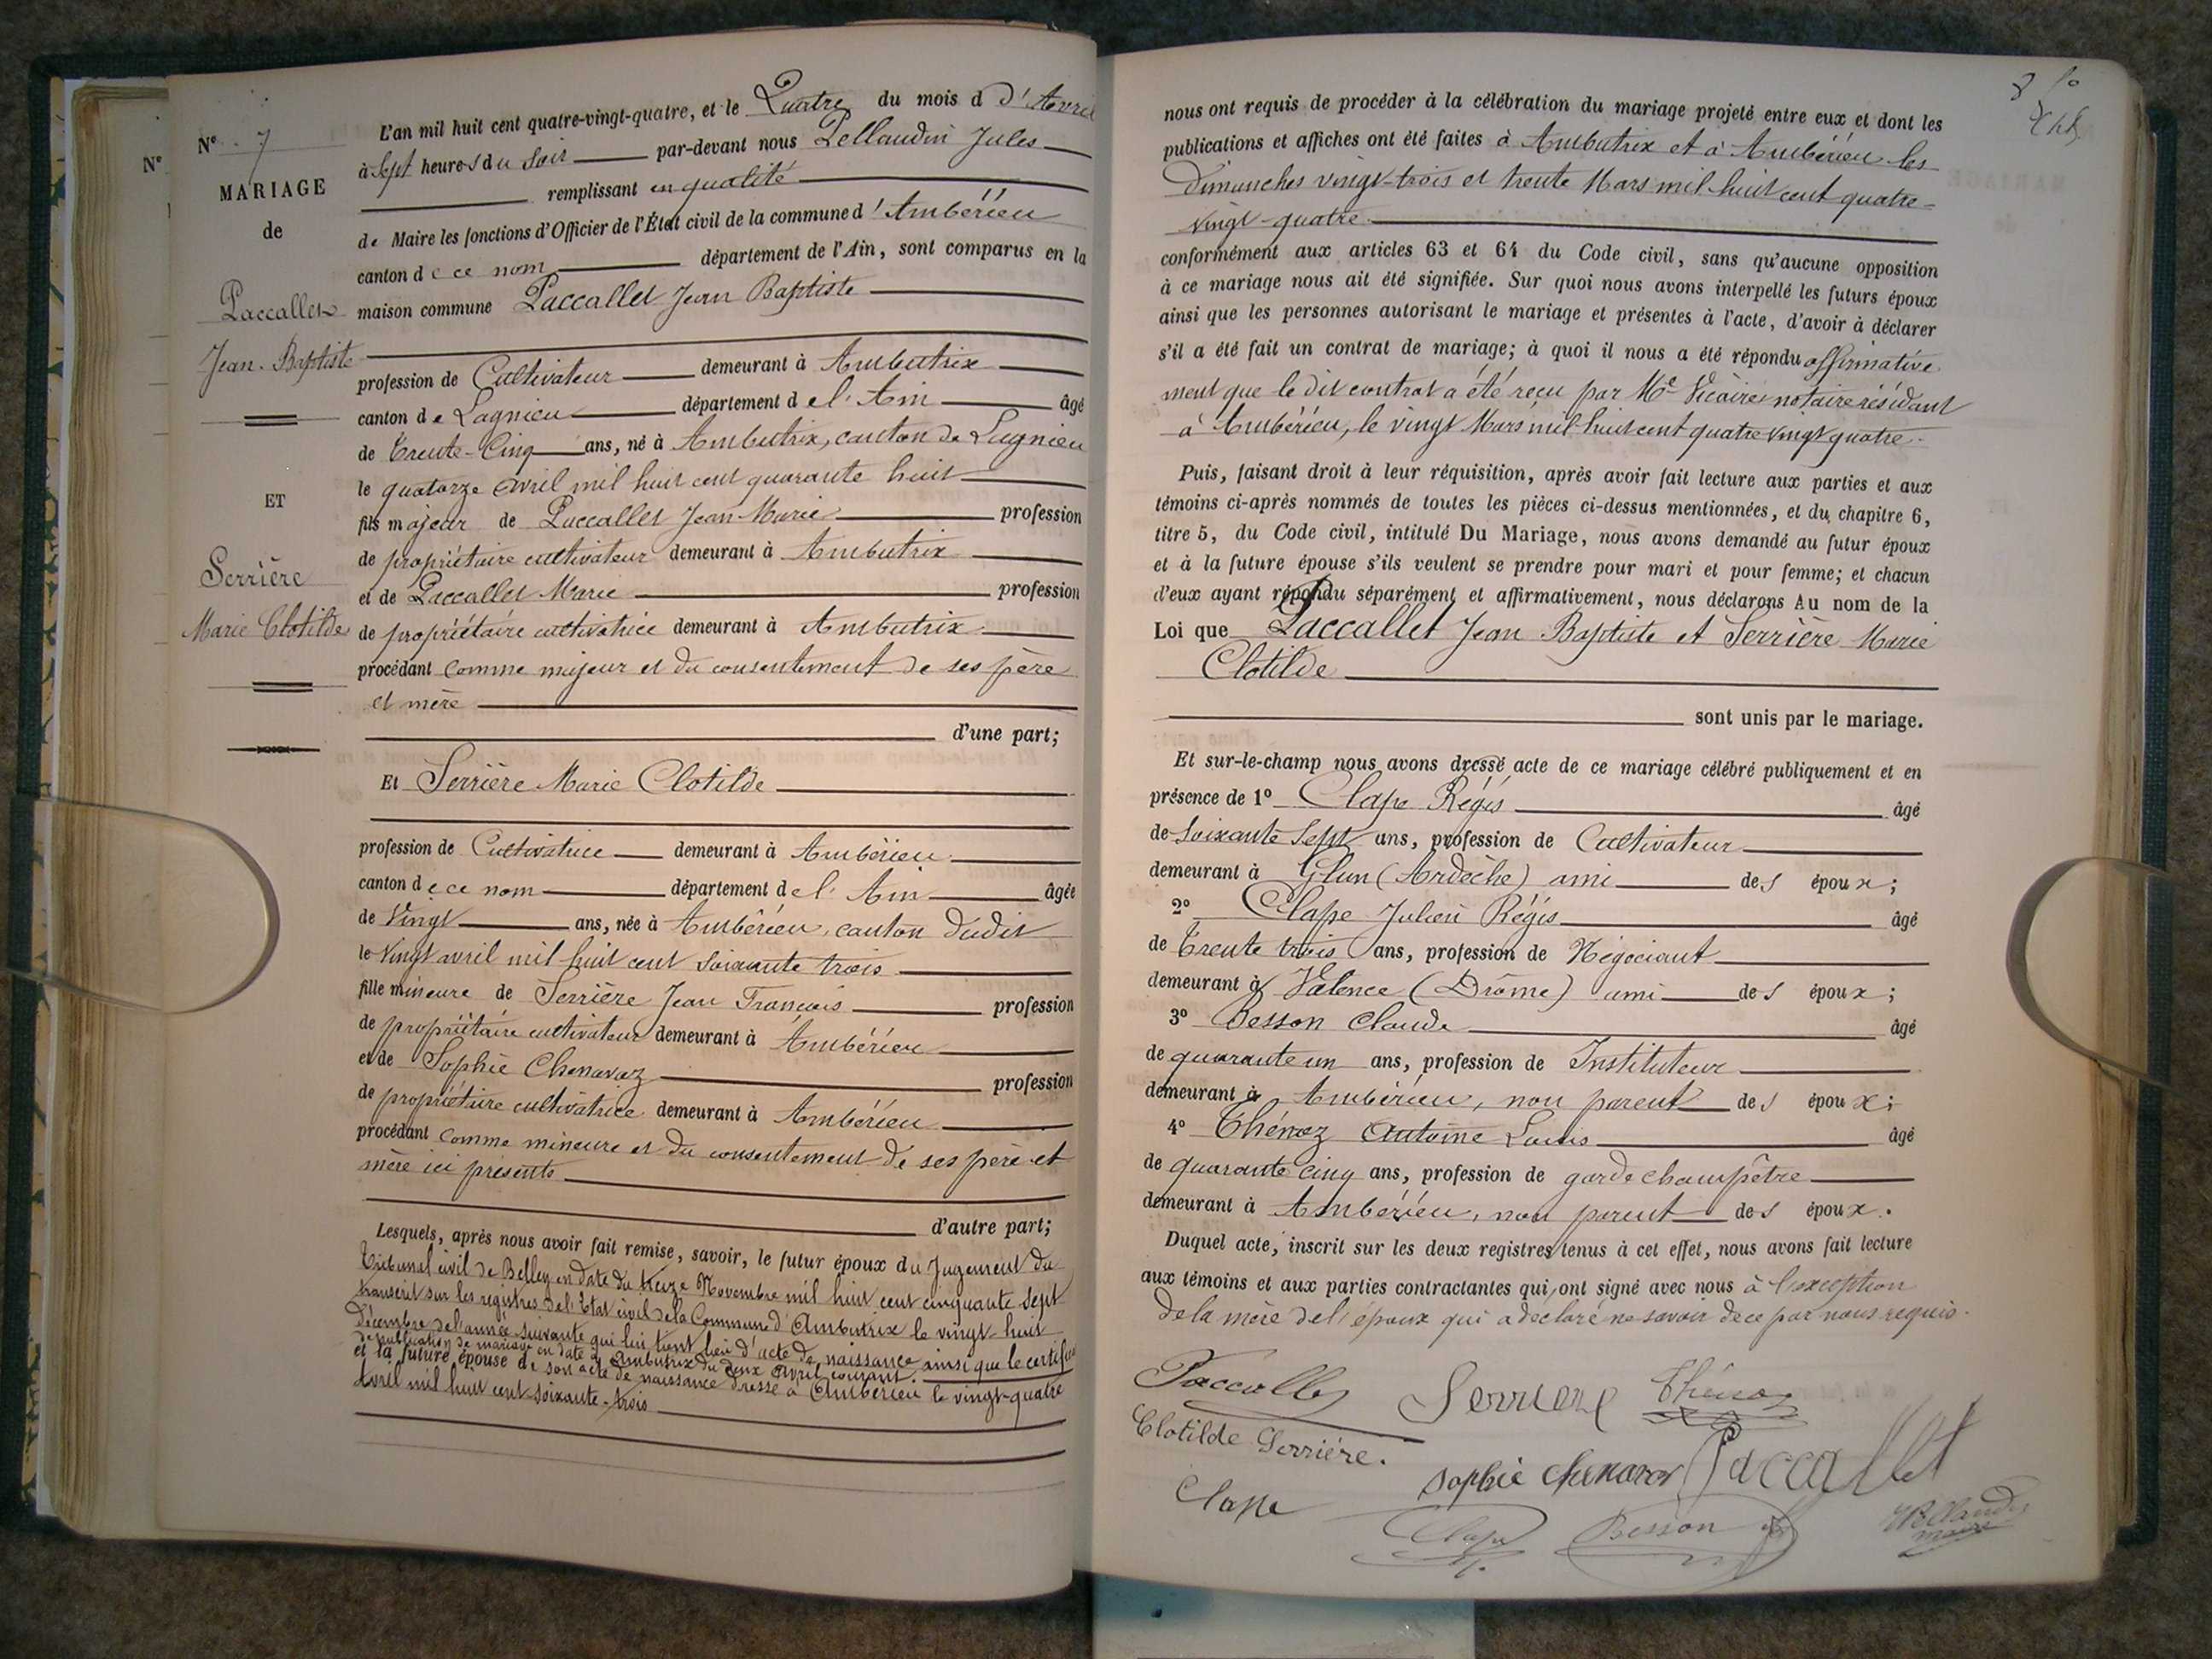 Nº
Nº 7
MARIAGE
de
Paccallet
Jean-Baptiste
ET
Serrière
Marie Clotilde
L'an mil huit cent quatre-vingt-quatre, et le Quatre du mois d d'Avril
à Sept heures du Soir par-devant nous Pellaudin Jules
remplissant en qualité
de Maire les fonctions d'Officier de l'État civil de la commune d'Ambérieu
canton de ce nom département de l'Ain, sont comparus en la
maison commune Paccallet Jean Baptiste
profession de Cultivateur demeurant à Ambutrix
canton de Lagnieu département de l'Ain âgé
de Trente-Cinq ans, né à Ambutrix, canton de Lagnieu
le quatorze avril mil huit cent quarante huit
fils majeur de Paccallet Jean-Marie profession
de propriétaire cultivateur demeurant à Ambutrix
et de Paccallet Marie profession
de propriétaire cultivatrice demeurant à Ambutrix
procédant comme majeur et du consentement de ses père
et mère
d'une part;
Et Serrière Marie Clotilde
profession de Cultivatrice demeurant à Ambérieu
canton de ce nom département de l'Ain âgée
de Vingt ans, née à Ambérieu, canton dudit
le Vingt avril mil huit cent soixante trois
fille mineure de Serrière Jean François profession
de propriétaire cultivateur demeurant à Ambérieu
et de Sophie Chenavaz profession
de propriétaire cultivatrice demeurant à Ambérieu
procédant comme mineure et du consentement de ses père et
mère ici présents
d'autre part;
Lesquels, après nous avoir fait remise, savoir, le futur époux du Jugement du
Tribunal civil de Belley en date du treize Novembre mil huit cent cinquante sept
transcrit sur les registres de l'Etat civil de la Commune d'Ambutrix le vingt-huit
Décembre de l'année suivante qui lui tient lieu d'acte de naissance ainsi que le certificat
de publication de mariage en date à Ambutrix du deux Avril courant.
et la future épouse de son acte de naissance dressé à Ambérieu le vingt-quatre
Avril mil huit cent soixante-trois
nous ont requis de procéder à la célébration du mariage projeté entre eux et dont les
publications et affiches ont été faites à Ambutrix et à Ambérieu les
Dimanches vingt-trois et trente Mars mil-huit cent quatre-
vingt-quatre
conformément aux articles 63 et 64 du Code civil, sans qu'aucune opposition
à ce mariage nous ait été signifiée. Sur quoi nous avons interpellé les futurs époux
ainsi que les personnes autorisant le mariage et présentes à l'acte, d'avoir à déclarer
s'il a été fait un contrat de mariage; à quoi il nous a été répondu affirmative
ment que le dit contrat a été reçu par Me Vicaire notaire résidant
à Ambérieu, le vingt Mars mil-huit cent quatre vingt quatre.
Puis, faisant droit à leur réquisition, après avoir fait lecture aux parties et aux
témoins ci-après nommés de toutes les pièces ci-dessus mentionnées, et du chapitre 6,
titre 5, du Code civil, intitulé Du Mariage, nous avons demandé au futur époux
et à la future épouse s'ils veulent se prendre pour mari et pour femme; et chacun
d'eux ayant répondu séparément et affirmativement, nous déclarons Au nom de la
Loi que Paccallet Jean Baptiste et Serrière Marie
Clotilde
sont unis par le mariage.
Et sur-le-champ nous avons dressé acte de ce mariage célébré publiquement et en
présence de 1º Clape Régis âgé
de Soixante Sept ans, profession de Cultivateur
demeurant à Glun (Ardèche) ami des époux;
2º Clape Julien Régis âgé
de Trente trois ans, profession de Négociant
demeurant à Valence (Drôme) ami des époux;
3º Besson Claude âgé
de quarante un ans, profession de Instituteur
demeurant à Ambérieu, non parent des époux;
4º Thénoz Antoine Louis âgé
de quarante cinq ans, profession de garde champêtre
demeurant à Ambérieu, non parent des époux.
Duquel acte, inscrit sur les deux registres tenus à cet effet, nous avons fait lecture
aux témoins et aux parties contractantes qui ont signé avec nous à l'exception
de la mère de l'époux qui a déclaré ne savoir de ce par nous requis.
Paccallet Serriere Thénoz
Clotilde Serrière.
Sophie chenavaz Paccallet
Clape
Clape Besson JPellaudin
maire